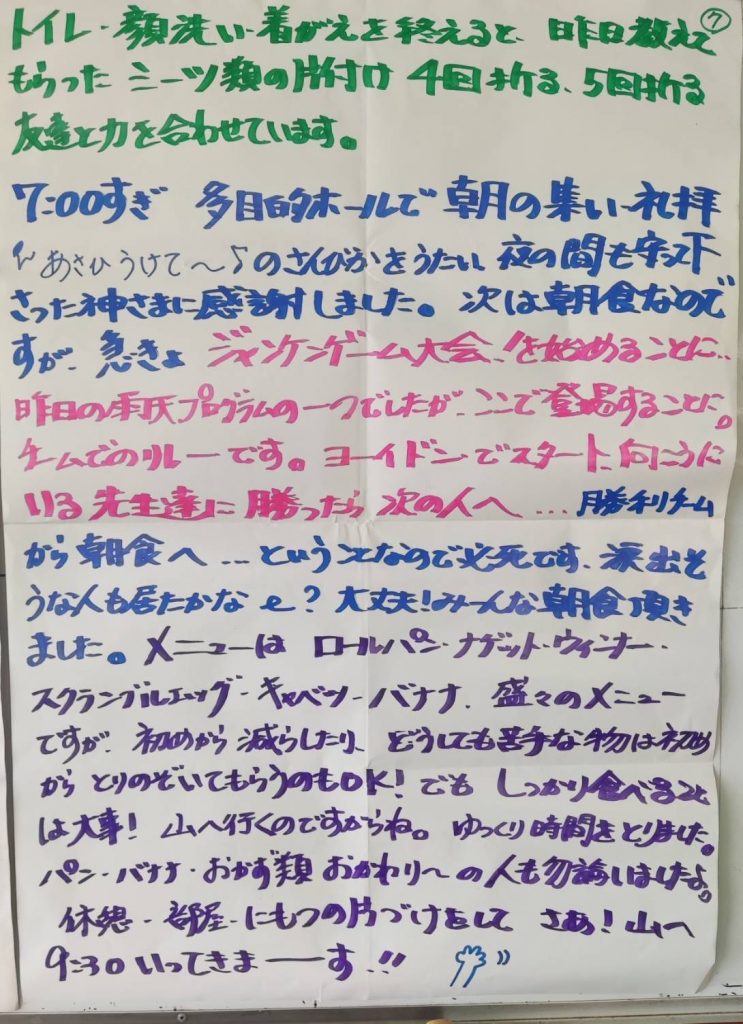 ⑦
トイレ・顔洗い・着がえを終えると、昨日教えて
もらった シーツ類の片付け 4回折る、5回折る
友達と力を合わせています。
7:00すぎ 多目的ホールで 朝の集い・礼拝
〽あさひうけて～♪のさんびかをうたい、夜の間も守って下
さった神さまに感謝しました。次は朝食なので
すが、急きょ ジャンケンゲーム大会!を始めることに‥
昨日の プログラムの一つでしたが、ここで登場することに。
チームでのリレーです。ヨーイドンでスタート、向こうに
いる先生達に勝ったら次の人へ… 勝利チーム
から朝食へ…ということなので必死です、涙出そ
うな人も居たかなぁ?大丈夫!みーんな朝食頂き
ました。メニューは ロールパン・ナゲット・ウィンナー・
スクランブルエッグ・キャベツ・バナナ、盛々のメニュー
ですが、初めから減らしたり、どうしても苦手な物は初め
からとりのぞいてもらうのもOK!でも しっかり食べること
は大事!山へ行くのですからね。ゆっくり時間をとりました。
パン・バナナ・おかず類 おかわり～の人も勿論いましたよ。
休憩・部屋・にもつの片づけをして さあ!山へ
9:30いってきまーーす!!